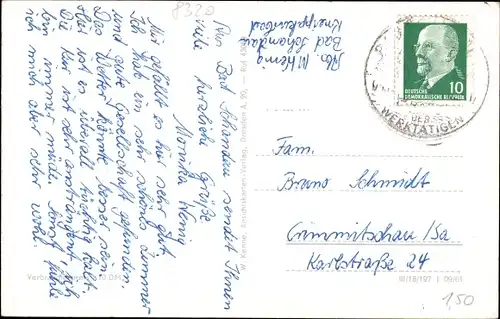 8320
Abs. M. Hennig
Bad Schandau
Kneippkurbad
Aus Bad Schandau sendet Ihnen
herzliche Grüße
Monika Hennig
Mir gefällt es hier sehr gut.
Ich hab ein sehr schönes Zimmer
und gute Gesellschaft gefunden.
Das Wetter könnte besser sein
aber so ist es überall tüchtig kalt.
Die Kur ist sehr anstrengend, ich
bin immer müde. Sonst fühle
ich mich aber sehr wohl.
W. Kenne, Ansichtskarten-Verlag, Dresden A 20,
10
DEUTSCHE
DEMOKRATISCHE REPUBLIK
DER
WERKTÄTIGEN
Fam.
Bruno Schmidt
Crimmitschau/Sa.
Karlstraße 24
III/18/197
1,50